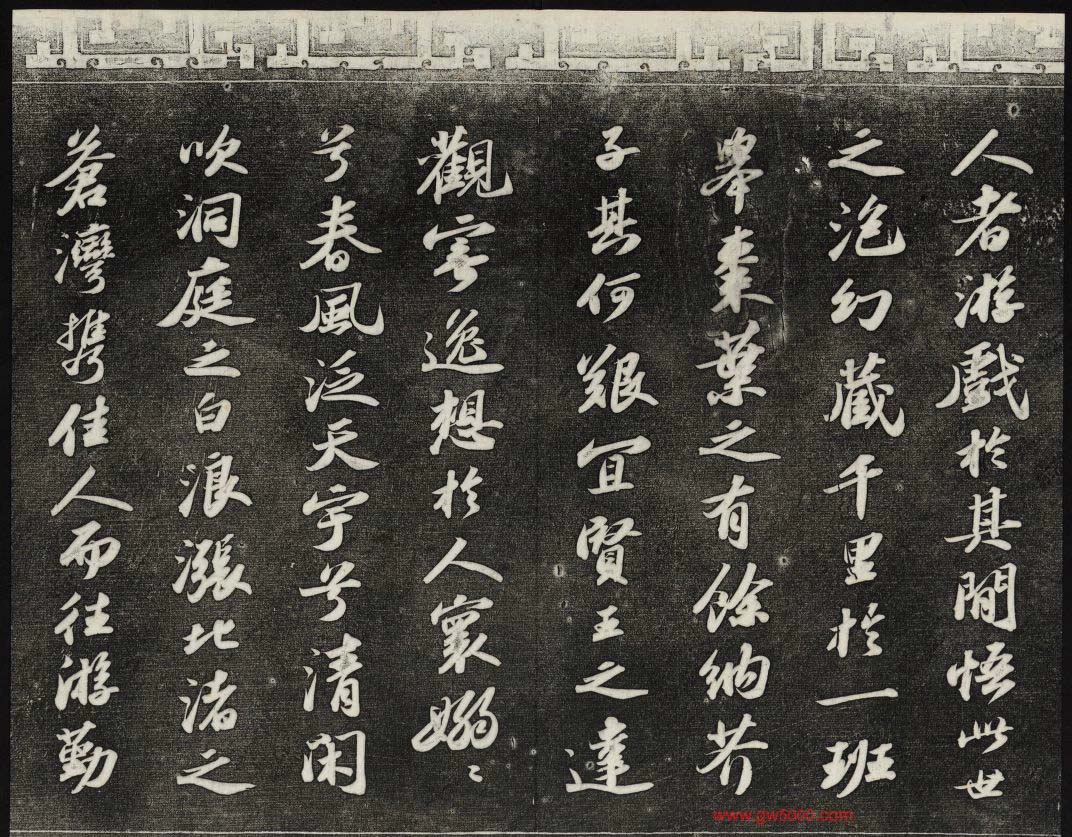 人者游戲於其閒悟此世
之泡幻藏千里於一班
舉棗葉之有餘納芥
子其何艱宜賢王之達
觀寄逸想於人寰嫋〻
兮春風泛天宇兮清閑
吹洞庭之白浪漲北渚之
蒼灣攜佳人而往游勤